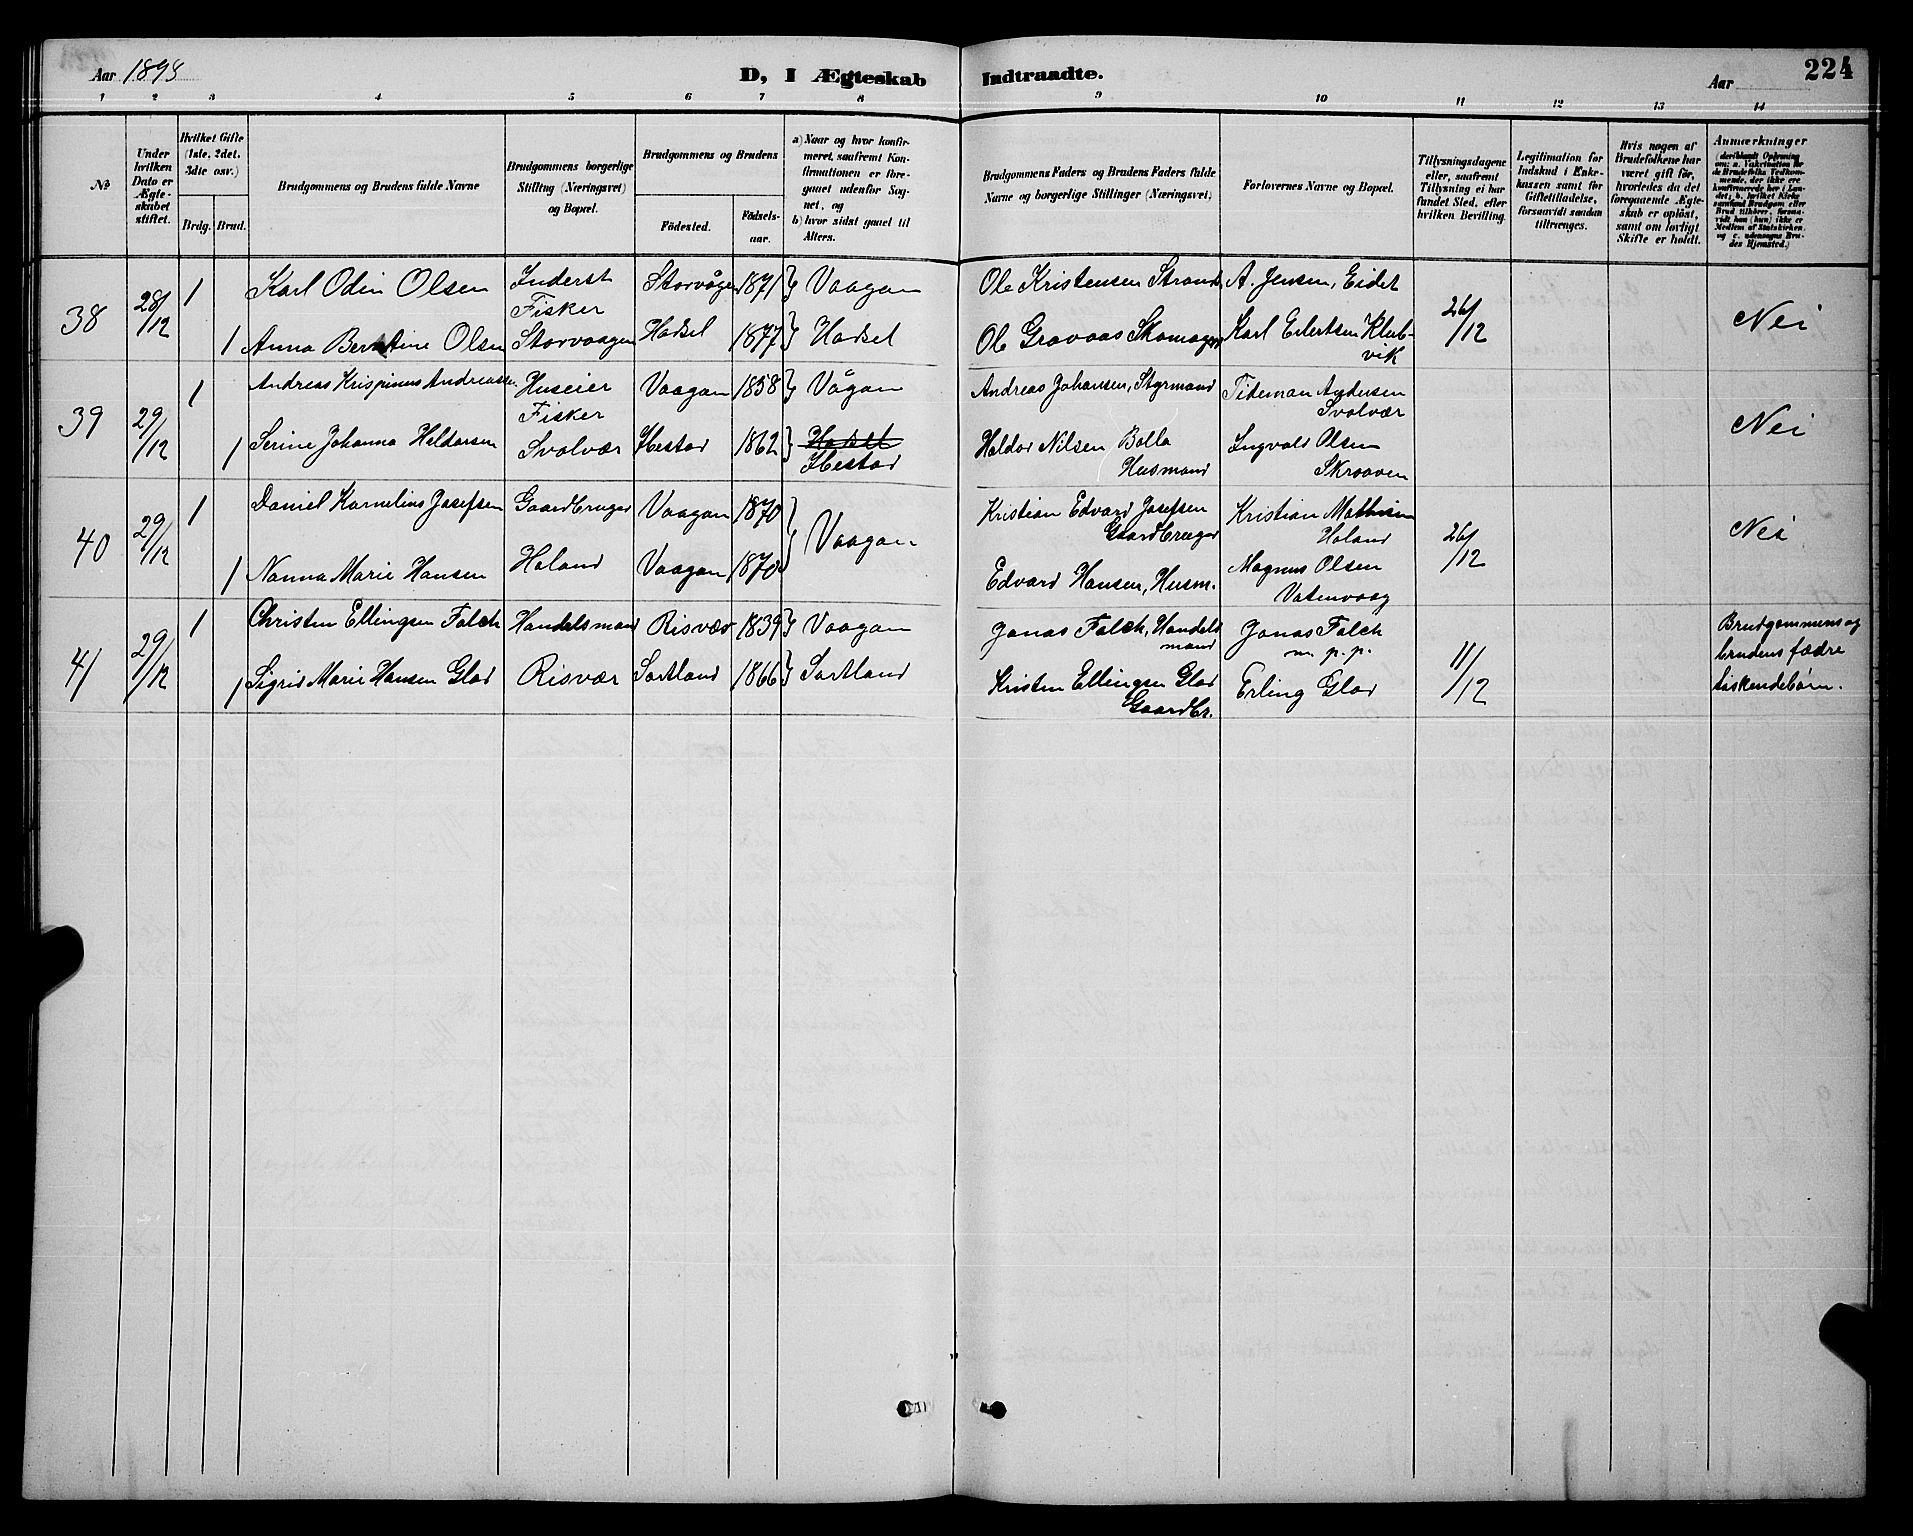 Aar 1898
D, I Ægteskab Indtraadte.
Aar
224
1 2 3 4 5 6 7 8 9 10 11 12 13 14
No
Under hvilken Dato er Ægteskabet stiftet.
Hvilket Gifte (1ste, 2det, 3die osv.)
Brdg. Brud.
Brudgommens og Brudens fulde Navne
Brudgommens borgerlige Stilling (Næringsvei) og Bopæl.
Brudgommens og Brudens
Fødested.
Fødselsaar.
a) Naar og hvor konfirmeret, saafremt Konfirmationen er foregaaet udenfor Sognet, og
b) hvor sidst gaaet til Alters.
Brudgommens Faders og Brudens Faders fulde Navne og borgerlige Stillinger (Næringsvei)
Forlovernes Navne og Bopæl.
Tillysningsdagene eller, saafremt Tillysning ei har fundet Sted, efter hvilken Bevilling.
Legitimation for Indskud i Enkekassen samt for Giftetilladelse, forsaavidt saadan tiltrænges.
Hvis nogen af Brudefolkene har været gift før, hvorledes da det foregaaende Ægteskab er opløst, samt om lovligt Skifte er holdt.
Anmærkninger
38 28/12 1 Karl Odin Olsen Inderst Storvågen 1871 Vaagan Ole Kristensen Strand A. Jensen, Eidet 26/12 Nei
Fisker
1 Anna Berntine Olsen Storvaagen Hadsel 1877 Hadsel Ole Gravaas Skomager Karl Eilertsen Klubvik
39 29/12 1 Andreas Krispinus Andreassen Huseier Vaagan 1858 Vågan Andreas Johansen, Styrmand Tideman Andersen Nei
Fisker Svolvær
1 Serine Johanna Heldorsen Svolvær Ibestad 1862 Hadsel Heldor Nilsen Bolla Ingvald Olsen
Ibestad Husmand Skraaven
40 29/12 1 Daniel Kornelius Josefsen Gaardbruger Vaagan 1870 Vaagan Kristian Edvard Josefsen Kristian Mathisen 26/12 Nei
Gaardbruger Holand
1 Nanna Marie Hansen Holand Vaagan 1870 Edvard Hansen, Husm. Magnus Olsen
Vatenvaag
41 29/12 1 Christen Ellingsen Falch Handelsmand Risvær 1839 Vaagan Jonas Falch, Handels Jonas Falch 11/12 Brudgommens og
mand m. p. p. brudens fædre
1 Sigrid Marie Hansen Glad Risvær Sortland 1866 Sortland Kristen Ellingsen Glad Erling Glad søskendebørn.
Gaardbr.